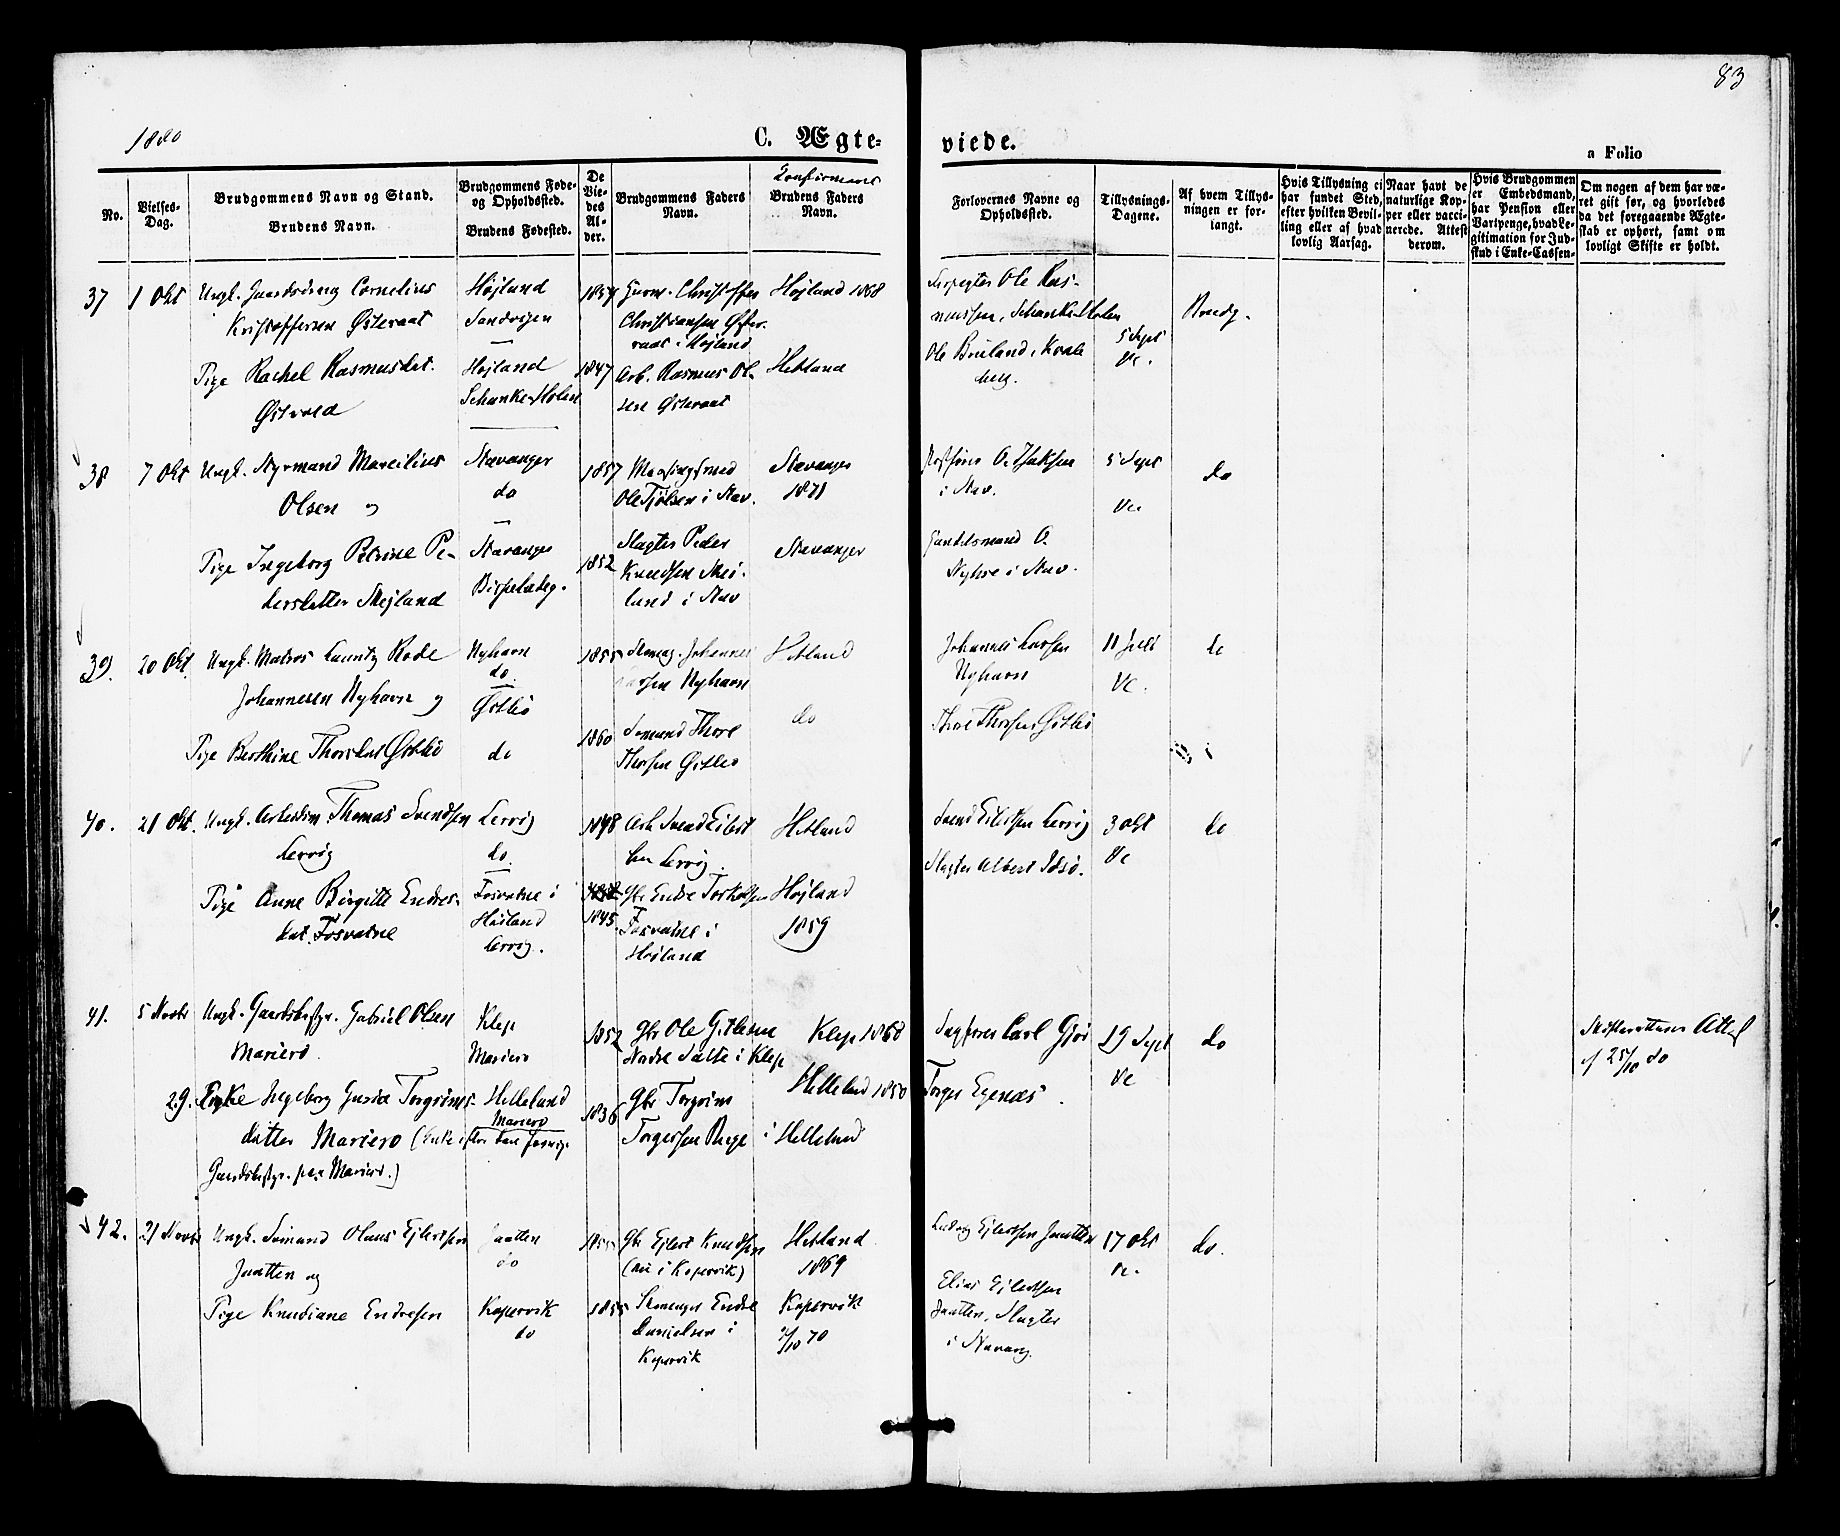 83
1880
C. Ægte-
viede.
a Folio
No.
Vielses-
Dag.
Brudgommens Navn og Stand.
Brudens Navn.
Brudgommens Føde-
og Opholdssted.
Brudens Fødested.
De
Vie-
des
Al-
der.
Brudgommens Faders
Navn.
Konfirmeret
Brudens Faders
Navn.
Forlovernes Navne og
Opholdssted.
Tillysnings-
Dagene.
Af hvem Tillys-
ningen er for-
langt.
Hvis Tillysning ei
har fundet Sted,
efter hvilken Bevil-
ling eller af hvad
lovlig Aarsag.
Naar havt de
naturlige Kop-
per eller vacci-
nerede. Attest
derom.
Hvis Brudgommen
er Embedsmand,
har Pension eller
Vartpenge, hvad Le-
gitimation for Ind-
skud i Enke-Cassen-
Om nogen af dem har væ-
ret gift før, og hvorledes
da det foregaaende Ægte-
skab er ophørt, samt om
lovligt Skifte er holdt.
37
1 Okt
Ungk. Cornelius
Kristoffersen Østeraat
Pige Rachel Rasmusdat.
Højland
Sandvigen
Højland
Schanke-Holen
1854
1847
Christoffer
Christiansen Øster-
raat i Højland
Arb. Rasmus Ol-
sen Østeraat
Højland 1868
Hetland
Ole Ras-
mussen, Schanke-Holen
Ole Bruland, Kvale
berg.
5 Sept
Vc.
Brudg.
38
7 Okt
Ungk. Styrmand Marcilius
Olsen og
Pige Ingeborg Petrine Pe-
dersdatter Mejland
Stavanger
do
Stavanger
Bispeladeg.
1857
1852
Ole Tjølsen i Stav.
Slagter Peder
Knudsen Mei-
land i Stav
Stavanger
1871
Stavanger
i Stav.
O.
Nyhre i Stav.
5 Sept
Vc
do
39.
20 Okt.
Ungk. Matros Lauritz Rode
Johannesen Nyhavn og
Pige Berthine Thorsdat Østbø
Nyhavn
do.
Østbø
do
1855
1860
Johannes
Larsen Nyhavn
Sømand Thore
Thorsen Østbø
Hetland
do
Johannes Larsen
Nyhavn
Thore Thorsen Østbø
11 Juli
Vc.
do
40.
21 Okt.
Ungk. Arbeidsm Thomas Svendsen
Lervig
Pige Anne Birgitte Endres-
dat. Fosvatne
Lervig
do.
Fosvatne i
Høiland
Lervig.
1848
1845.
Arb Svend Eilert
sen Lervig.
Gbr Endre Torkelsen
Fosvatne i
Høiland
Hetland
Højland
1859
Svend Eilertsen Lervig
Slagter Albert Idsø.
3 Okt
Vc
do
41.
5 Novbr
Ungk. Gaardsbestyr. Gabriel Olsen
Mariero.
29. Enke Ingeborg Gurine Torgrims-
datter Mariero (Enke efter
Gaardsbestyr. paa Mariero.)
Klep
Mariero
Helleland
Mariero
1852
1836
Gbr Ole Gitlesen
Nedre Salte i Klep
Gbr Torgrim
Torgersen Rege i Helleland
Klep 1868
Helleland 1850
Sagfører Carl Gjør
Torger Egenæs.
19 Sept
Vc
do
Skifterettens Attest
af 25/10 80
42.
21 Novbr
Ungk. Sømand Olaus Ejlertsen
Jaatten og
Pige Knudiane Endresen
Jaatten
do
Kopervik
do
1855
1855
Gbr Ejlert Knudsen
(nu i Kopervik)
Endre
Danielsen i
Kopervik
Hetland
1869
Kopervik
2/10 70
Ludvig Ejlertsen Jaatten
Elias Ejlertsen
Jaatten, Slagter
i Stavang.
17 Okt
Vc.
do.